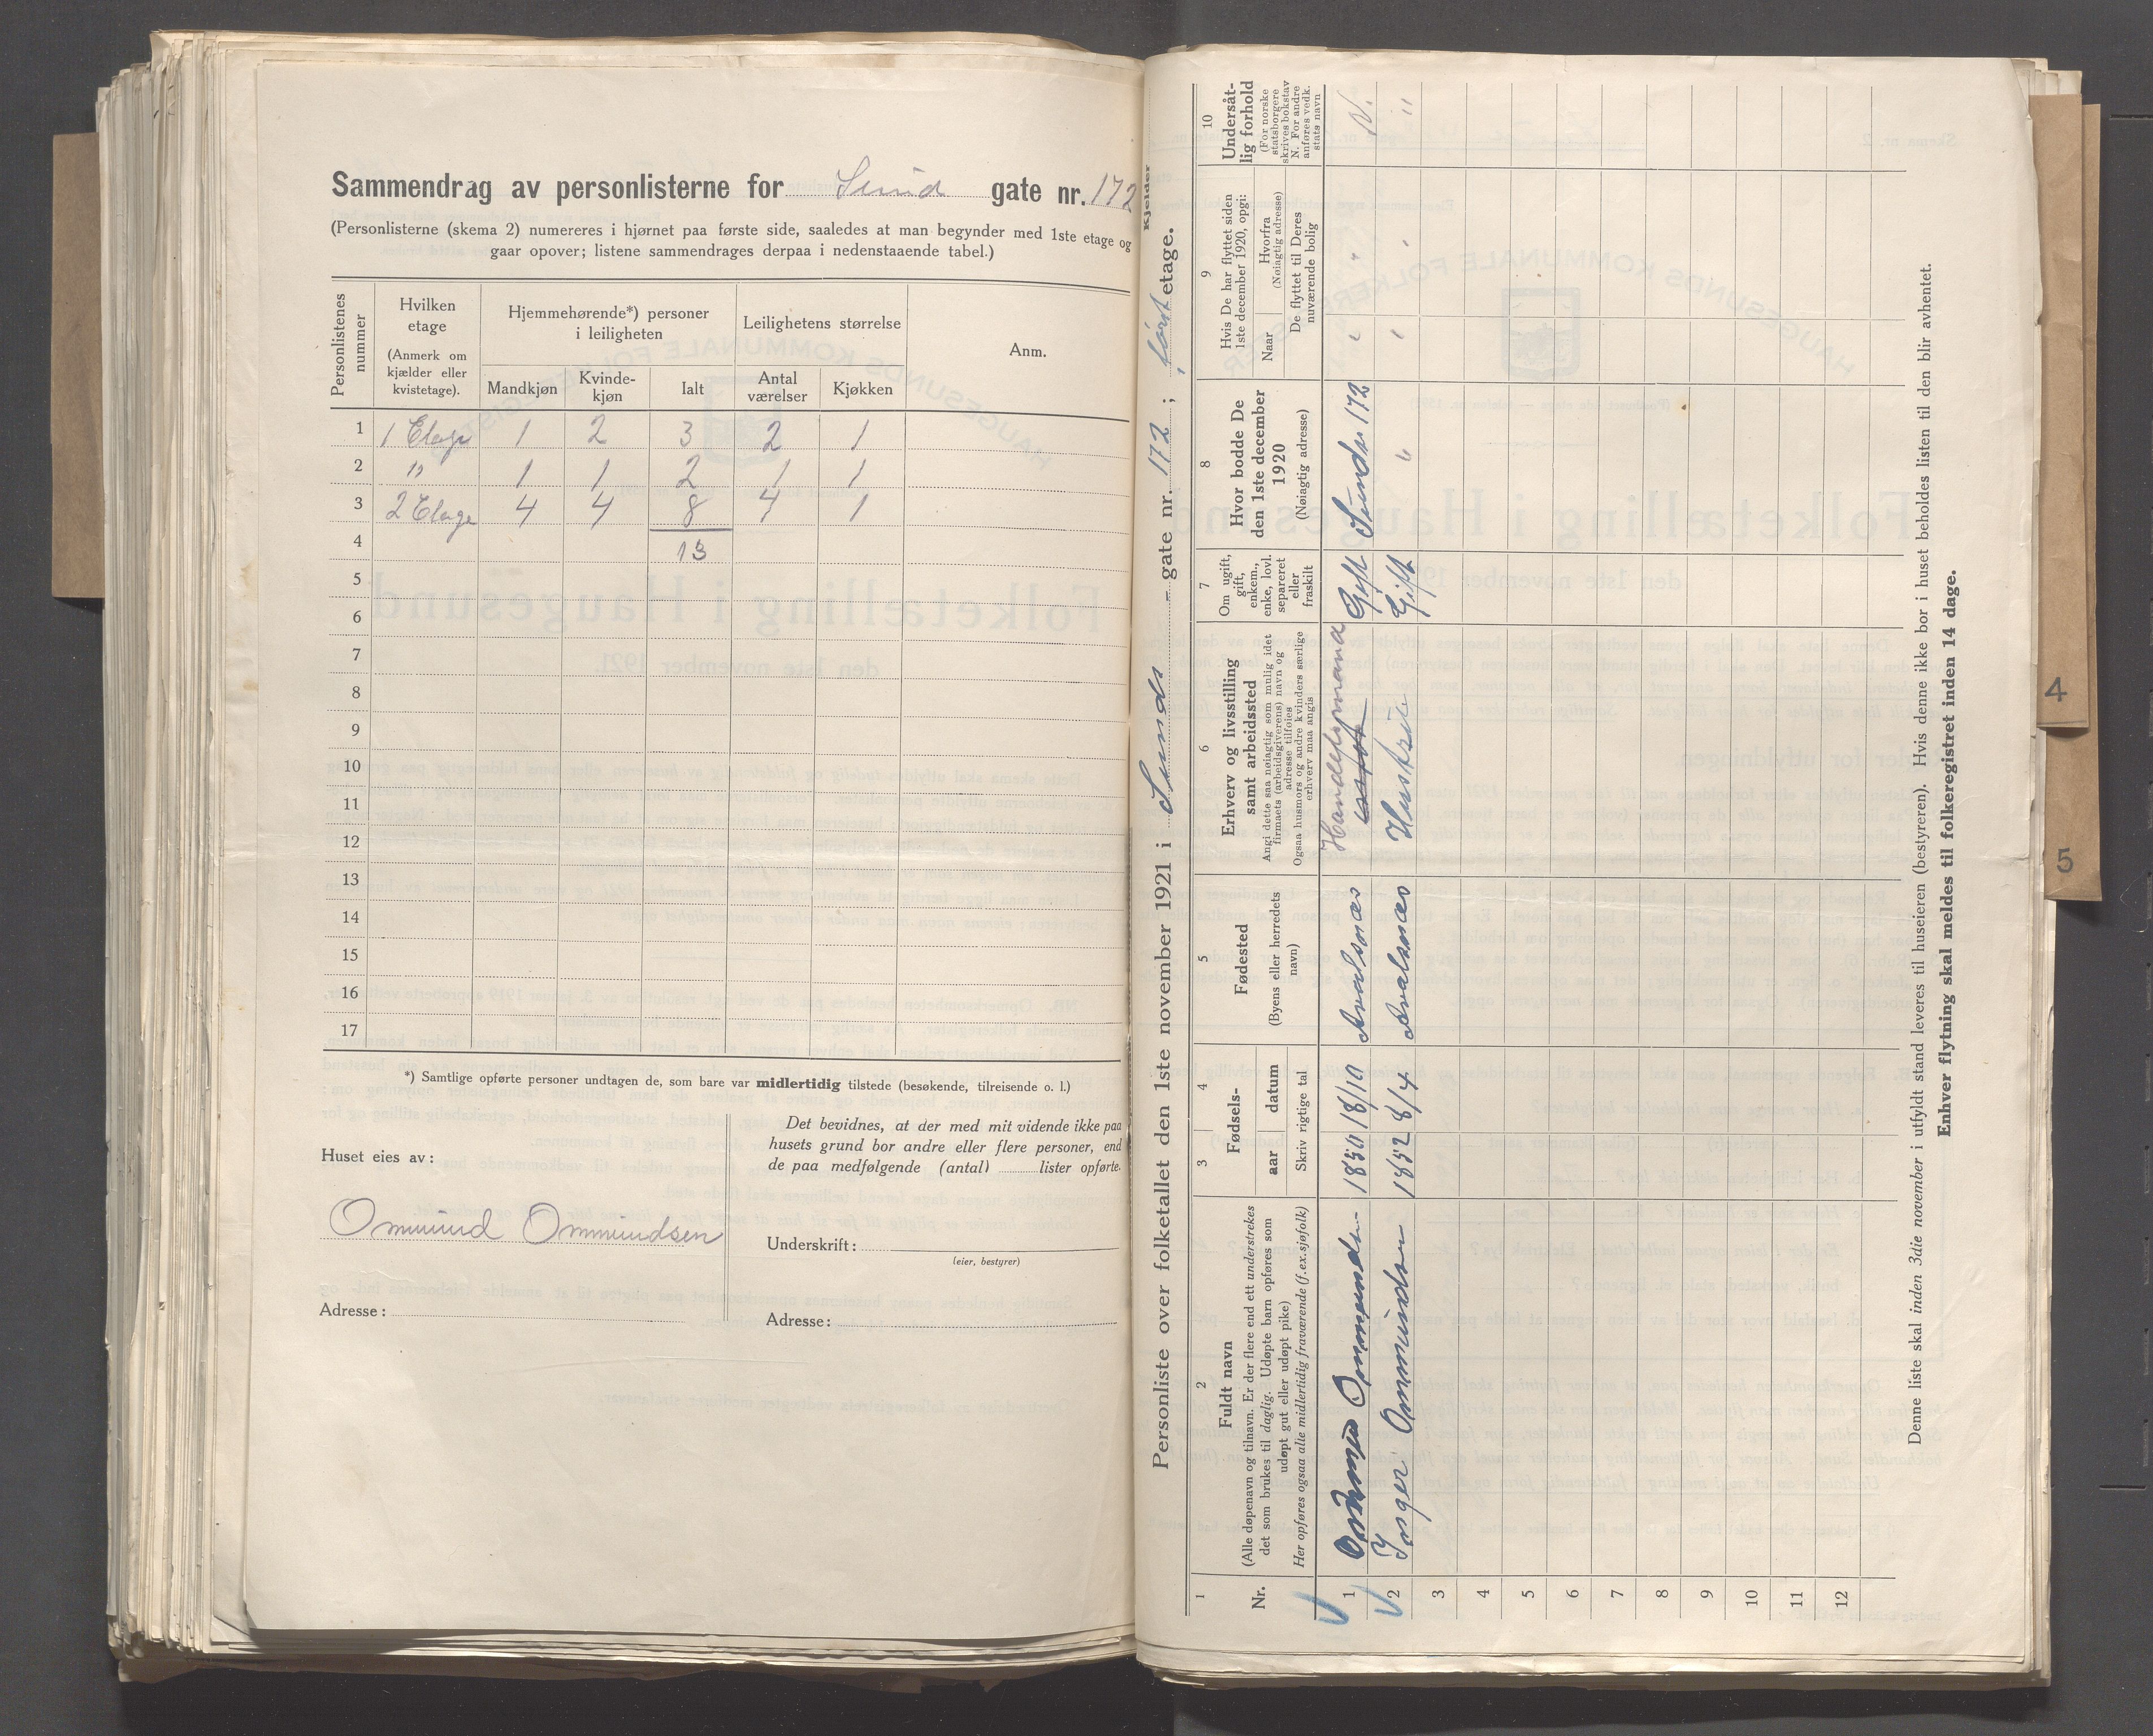 Sammendrag av personlisterne for Sund gate nr. 172
(Personlisterne (skema 2) numereres i hjørnet paa første side, saaledes at man begynder med 1ste etage og
gaar opover; listene sammendrages derpaa i nedenstaaende tabel.)
Personlistenes nummer
Hvilken etage
(Anmerk om kjælder eller kvistetage).
Hjemmehørende*) personer i leiligheten
Leilighetens størrelse
Anm.
Mandkjøn Kvinde-kjøn Ialt Antal værelser Kjøkken
1 1 Etage 1 2 3 2 1
2 " 1 1 2 1 1
3 2 Etage 4 4 8 4 1
4 13
5
6
7
8
9
10
11
12
13
14
15
16
17
*) Samtlige opførte personer undtagen de, som bare var midlertidig tilstede (besøkende, tilreisende o. l.)
Huset eies av:
Ommund Ommundsen
Adresse:
Det bevidnes, at der med mit vidende ikke paa
husets grund bor andre eller flere personer, end
de paa medfølgende (antal) lister opførte.
Underskrift:
(eier, bestyrer)
Adresse:
Personliste over folketallet den 1ste november 1921 i Sunds gate nr. 172 ; først etage.
Kjelder
1 2 3 4 5 6 7 8 9 10
Nr.
Fuldt navn
(Alle døpenavn og tilnavn. Er der flere end ett understrekes
det som brukes til daglig. Udøpte barn opføres som
udøpt gut eller udøpt pike)
Her opføres ogsaa alle midlertidig fraværende (f.ex.sjøfolk)
Fødsels-
aar datum
Skriv rigtige tal
Fødested
(Byens eller herredets navn)
Erhverv og livsstilling
samt arbeidssted
Angi dette saa nøiagtig som mulig idet
firmaets (arbeidsgiverens) navn og
adresse tilføies
Ogsaa husmors og andre kvinders særlige
erhverv maa angis
Om ugift,
gift,
enkem.,
enke, lovl.
separeret
eller
fraskilt
Hvor bodde De
den 1ste december
1920
(Nøiagtig adresse)
Hvis De har flyttet siden
1ste december 1920, opgi:
Naar
Hvorfra
(Nøiagtig adresse)
De flyttet til Deres
nuværende bolig
Undersåt-
lig forhold
(For norske
statsborgere
skrives bokstav
N. For andre
anføres vedk.
stats navn
1 Ommund Ommundsen 1850 18/10 Avalsnæs Handelsmand Gift Sundsr 172 " " N.
2 Inger Ommundsen 1852 8/4 Avalsnæs Huskste Gift " " " "
3
4
5
6
7
8
9
10
11
12
Denne liste skal inden 3die november i utfyldt stand leveres til huseieren (bestyreren). Hvis denne ikke bor i huset beholdes listen til den blir avhentet.
Enhver flytning skal meldes til folkeregistret inden 14 dage.
4
5